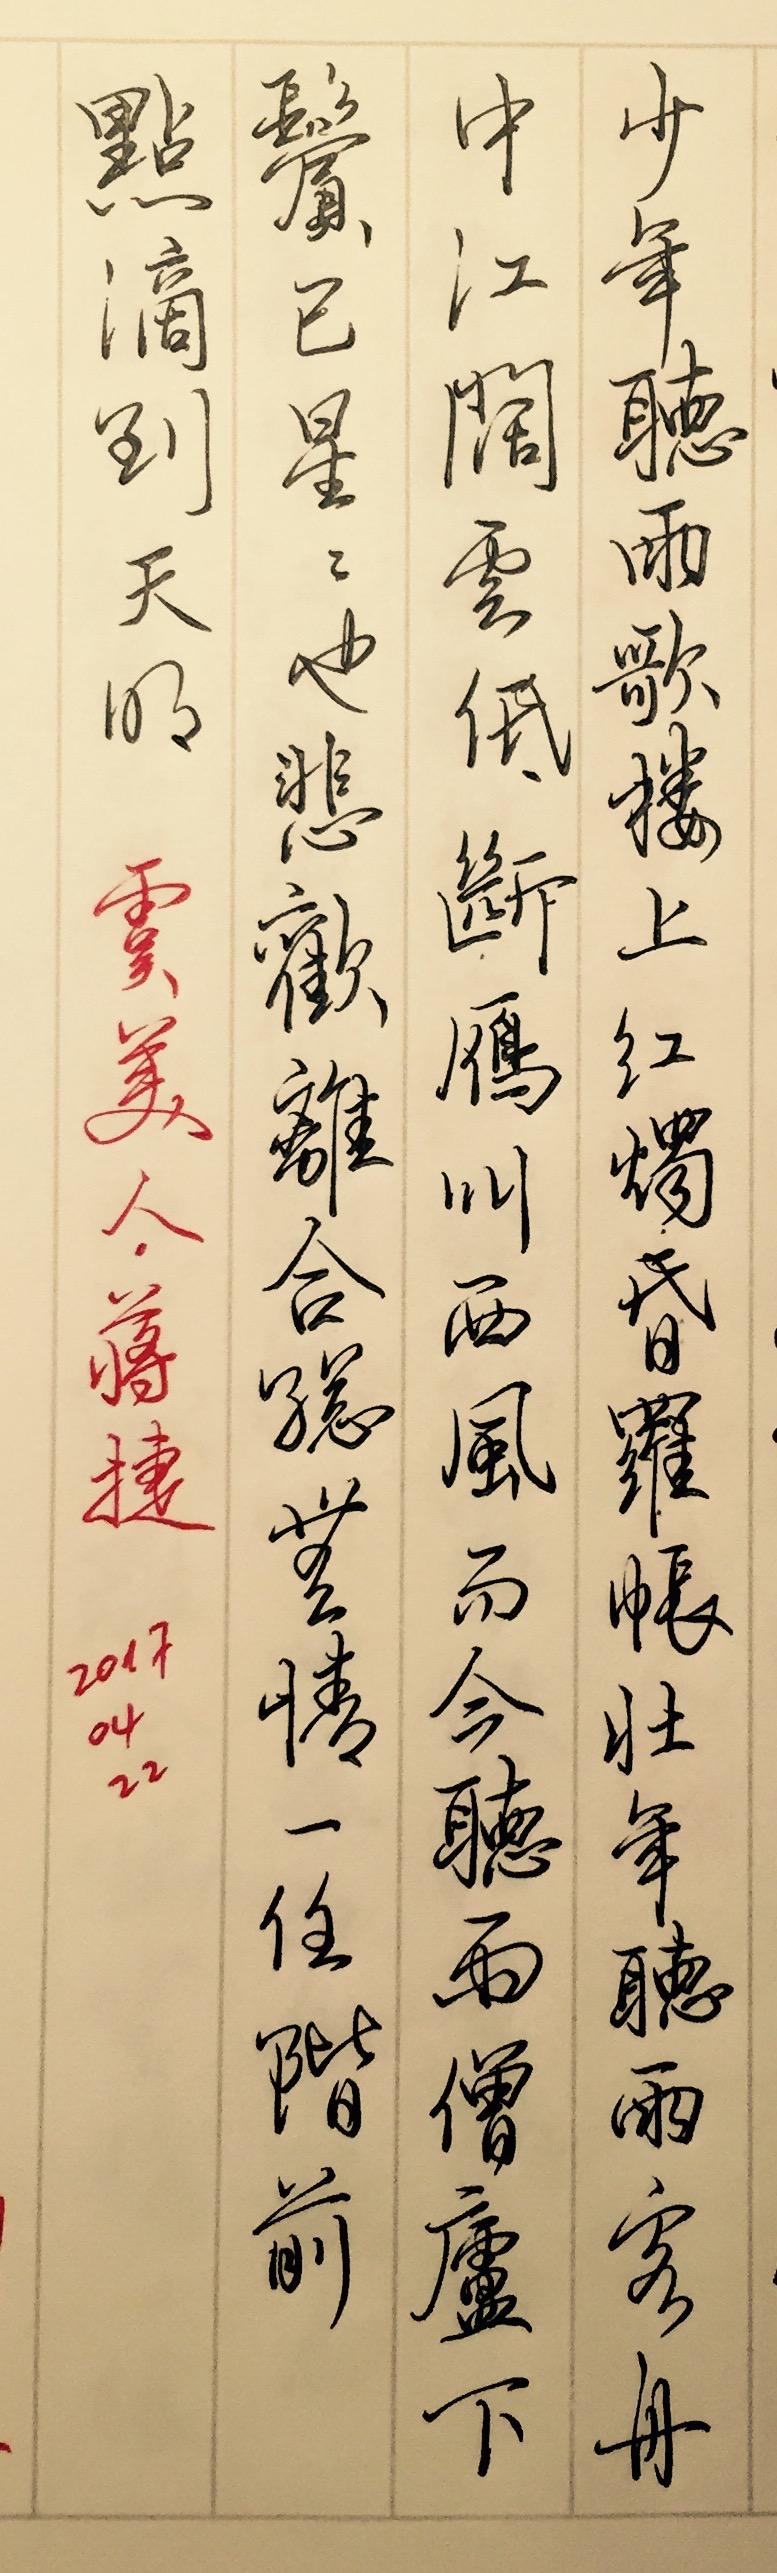 少年聽雨歌楼上红燭昏羅帳壮年聽雨客舟
中江闊雲低斷雁叫西風而今聽雨僧廬下
鬢已星〻也悲歡離合總無情一任階前
點滴到天明 虞美人·蔣捷 2017
04
22